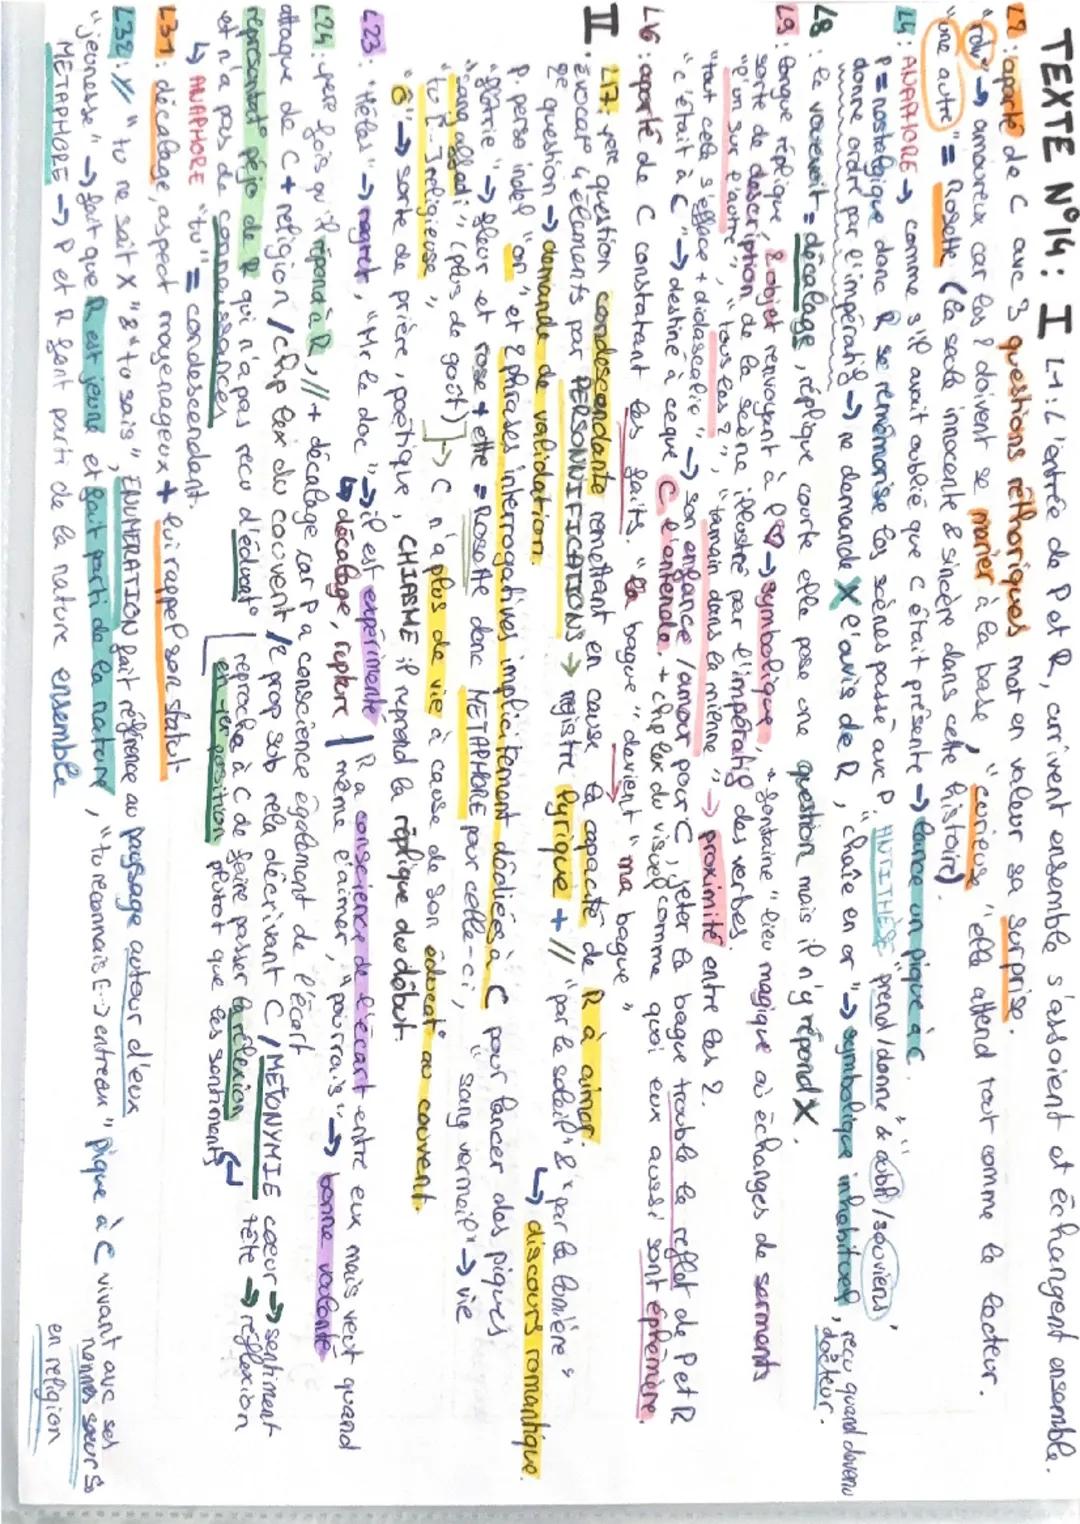 TEXTE N°14: I L1: L'entrée de P et R, arrivent ensemble s'assoient et échangent ensemble.
L2: aparté de C avec 3 questions réthoriques met en valeur sa surprise.
"rdv" → amoureux car les 2 doivent se marier à la base, "curieuse" elle attend tout comme le lecteur.
"une autre" = Rosette (la seule innocente & sincère dans cette histoire)
L4: ANAPHORE → comme s'il avait oublié que C était présente → lance un pique à C.
P = nostalgique donc R se remémorise les scènes passé avec P. ANTITHÈSE "prend/donne" & "oubli/souviens",
donne ordre par l'impératif → ne demande X l'avis de R, "chaîne en or" → symbolique inhabituel, reçu quand devenu docteur.
L8: le vouvoiement = décalage, réplique courte elle pose une question mais il n'y répond X.
L9: longue réplique, 2 objet renvoyant à l'♡ → symbolique, "fontaine" lieu magique où échanges de serments
sorte de description de la scène illustré par l'impératif des verbes.
"l'un sur l'autre", "tous les 2", "ta main dans la mienne" → proximité entre les 2.
"tout cela s'efface + didascalie" → son enfance/amour pour C, jeter la bague trouble le reflet de P et R
"c'était à C" → destiné à ce que C l'entende + chp lex du visuel comme quoi eux aussi sont éphémère.
L16: aparté de C constatant les faits. "la bague" devient "ma bague"
II. L17: 1ère question condescendante remettant en cause la capacité de R à aimer.
évocat° 4 éléments par PERSONNIFICATIONS → registre lyrique + // "par le soleil" & "par la lumière"
2e question → demande de validation. ↳ discours romantique.
P. perso indef "on" et 2 phrases interrogatives implicitement dédiées à C pour lancer des piques
"flétrie" → fleur et rose + elle = Rosette donc METAPHORE pour celle-ci, "sang vermeil" → vie
"sang affadi" (plus de goût) ]→ C n'a plus de vie à cause de son éducat° au couvent.
"tu R - J religieuse"
"ô" → sorte de prière, poétique, CHIASME il reprend la réplique du début.
L23: "Hélas" → regret, "Mr le doc" → il est expérimenté | R a conscience de l'écart entre eux mais veut quand
↳ décalage, rupture | même l'aimer, "pourrais" → bonne volonté
L24: 1ère fois qu'il répond à R, // + décalage car P a conscience également de l'écart
attaque de C + religion / chp lex du couvent / 2e prop sub rela décrivant C / METONYMIE cœur → sentiment
représentat° péjo de R qui n'a pas reçu d'éducat° | reproche à C de faire passer la réflexion tête → réflexion
et n'a pas de connaissances | en 1er position plutot que les sentiments
↳ ANAPHORE "tu" = condescendant.
L31: décalage, aspect moyenageux + lui rappel son statut
L32: // "tu ne sait X" & "tu sais", ENUMERATION fait référence au paysage autour d'eux
"jeunesse" → fait que R est jeune et fait parti de la nature, "tu reconnais [...] entreau" pique à C vivant avec ses nonnes sœurs en religion
METAPHORE → P et R font parti de la nature ensemble